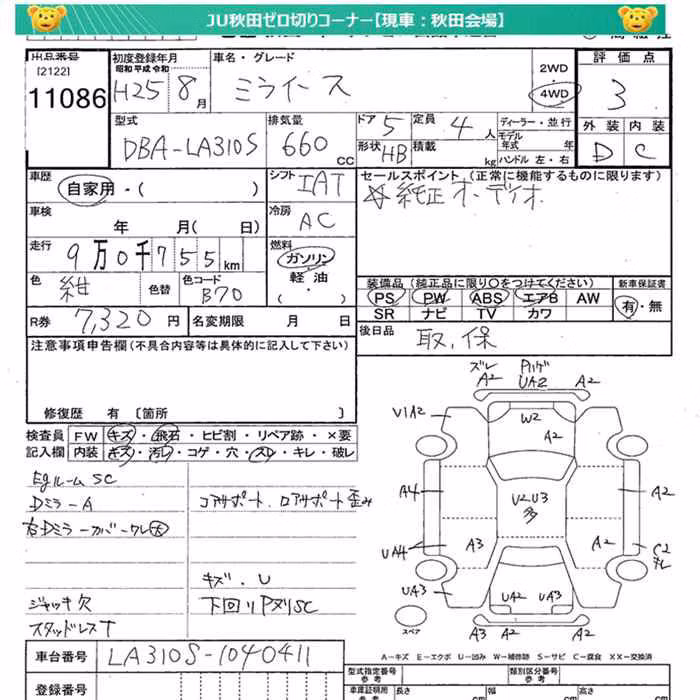 JU秋田ゼロ切りコーナー【現車：秋田会場】
出品番号
[2122]
11086
初度登録年月
昭和 平成 令和
H25 8月
車名・グレード
ミライース
2WD
4WD
評価点
3
外装 内装
D C
型式
DBA-LA310S
排気量
660 CC
ドア 5
定員 4人
形状 HB
積載 kg
ディーラー・並行
モデル年式 年
ハンドル 左・右
車歴
自家用・( )
シフト IAT
車検
年 月( 日)
冷房
AC
走行
9万0千755km
燃料
ガソリン
軽油
( ・ )
色
紺
色替
色コード
B70
R券 7,320円
名変期限 月 日
セールスポイント(正常に機能するものに限ります)
☆純正オーディオ
装備品(純正品に限り○をつけてください)
PS PW ABS エアB AW
SR ナビ TV カワ
新車保証書
有・無
後日品
取、保
注意事項申告欄(不具合内容等は具体的に記入して下さい)
修復歴 有〔箇所 〕
検査員 FW キズ・飛石・ヒビ割・リペア跡・×要
記入欄 内装 キズ・汚レ・コゲ・穴・スレ・キレ・破レ
EgルームSC
Dミラ-A
右Dミラーカバーワレ大
ジャッキ欠
スタッドレスT
コアサポート、ロアサポート歪み
キズ・U
下回りPヌリSC
ズレ
A2
Pハゲ
UA2
A2
V1A2
W2
A2
A4
U2U3
多
A2
UA4
A3
A2
C2
ズレ
UA3
UA2
UA3
スペア
A3
A2
A2
A-キズ E-エクボ U-凹み W-補修跡 S-サビ C-腐食 XX-交換済
車台番号 LA310S-1040411
登録番号
型式指定番号
参考
類別区分番号
参考
車庫証明用
参考
長さ cm
幅 cm
高さ cm